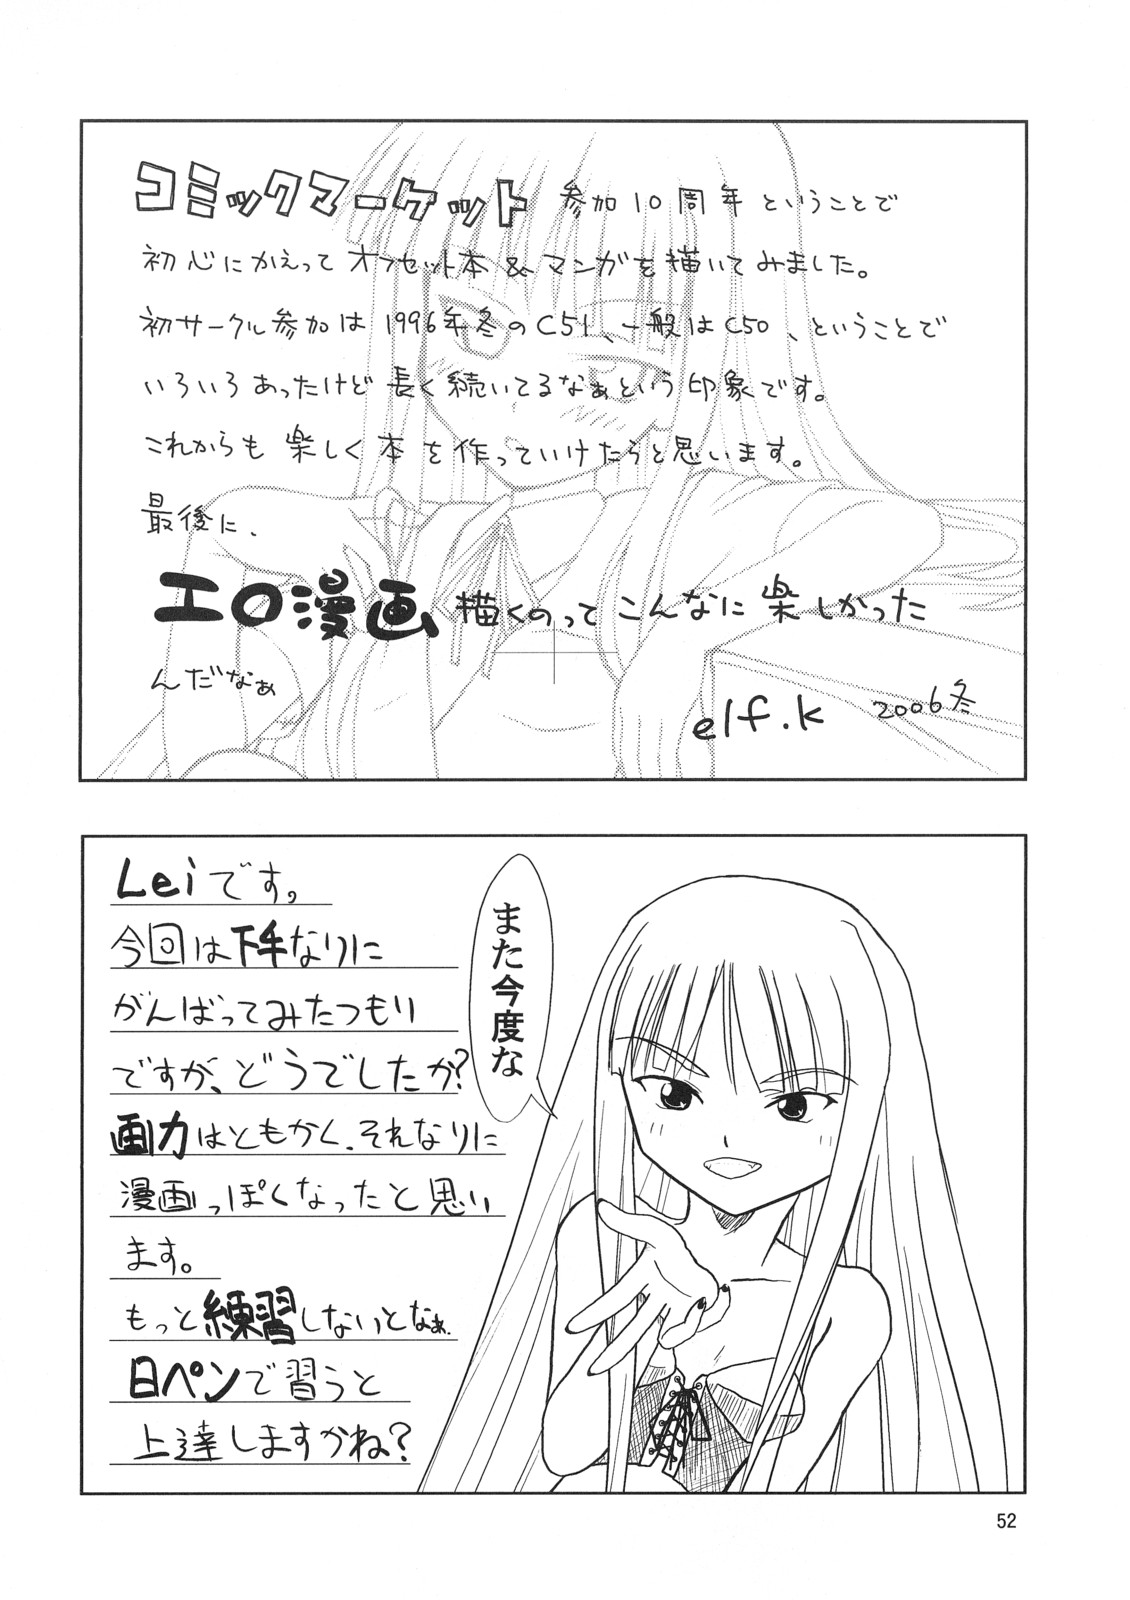 コミックマーケット 参加10周年ということで
初心にかえってオフセット本&マンガを描いてみました。
初サークル参加は1996年冬のC51、一般はC50、ということで
いろいろあったけど長く続いてるなぁという印象です。
これからも楽しく本を作っていけたらと思います。
最後に、
エロ漫画描くのってこんなに楽しかった
んだなぁ
elf.k 2006冬
Leiです。
今回は下手なりに
がんばってみたつもり
ですが、どうでしたか?
画力はともかく、それなりに
漫画っぽくなったと思い
ます。
もっと練習しないとなぁ.
日ペンで習うと
上達しますかね?
また今度な
52